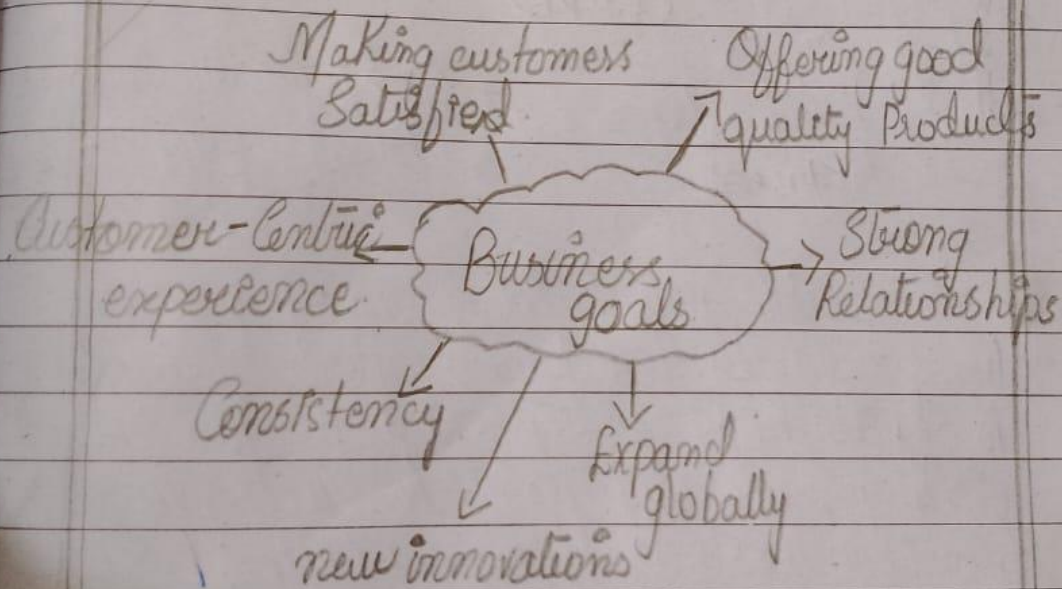 Making customers
Satisfied
Offering good
quality Products
Customer-Centric
experience
Business
goals
Strong
Relationships
Consistency
Expand
globally
new innovations